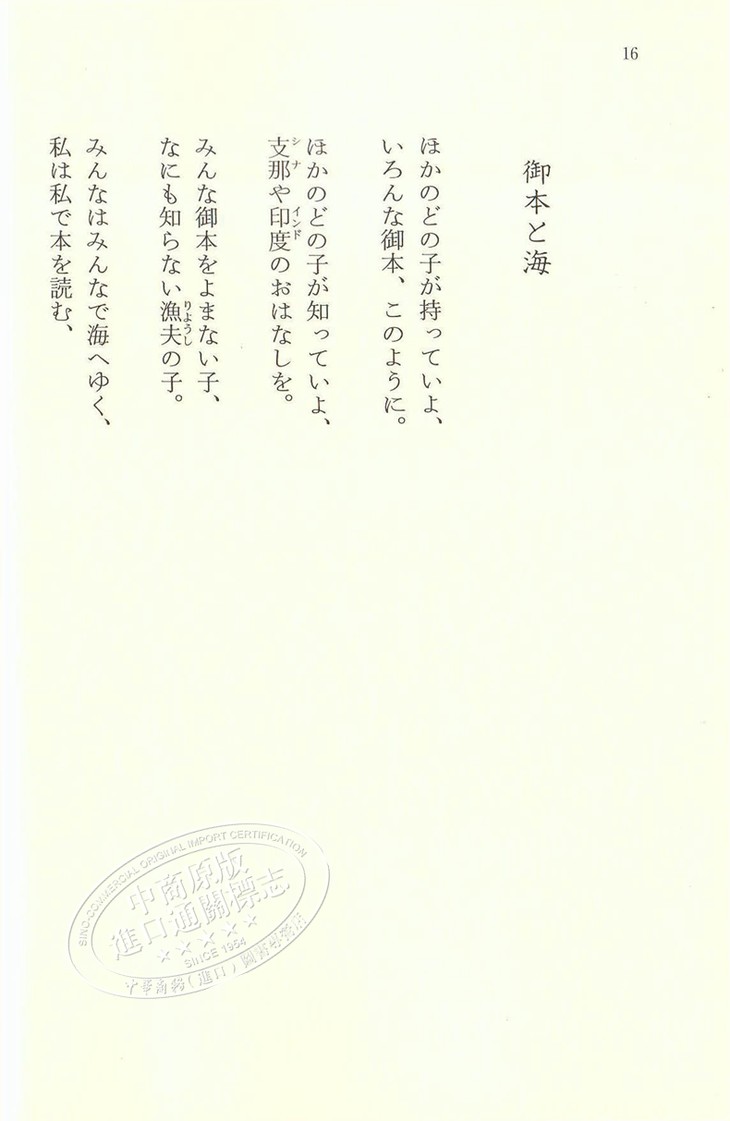 16
御本と海
ほかのどの子が持っていよ、
いろんな御本、このように。
ほかのどの子が知っていよ、
支那や印度のおはなしを。
シナ
インド
みんな御本をよまない子、
なにも知らない漁夫の子。
りようし
みんなはみんなで海へゆく、
私は私で本を読む、
SINO-COMMERCIAL ORIGINAL IMPORT CERTIFICATION
中商原版
進口通關標志
SINCE 1954
中華商務(進口)圖書專營店